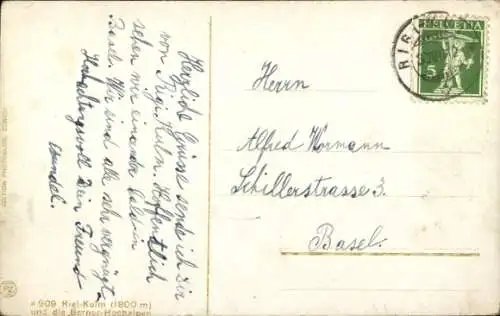 Herzliche Grüsse sende ich Dir
von Rigi-Kulm. Hoffentlich
sehen wir einander bald in
Basel. Wir sind alle sehr vergnügt.
Hochachtungsvoll Dein Freund
HELVETIA
5
Herrn
Alfred Hormann
Schillerstrasse 3.
Basel.
EDITION PHOTOGLOB, ZÜRICH
PZ
# 909 Rigi-Kulm (1800 m)
und die Berner-Hochalpen